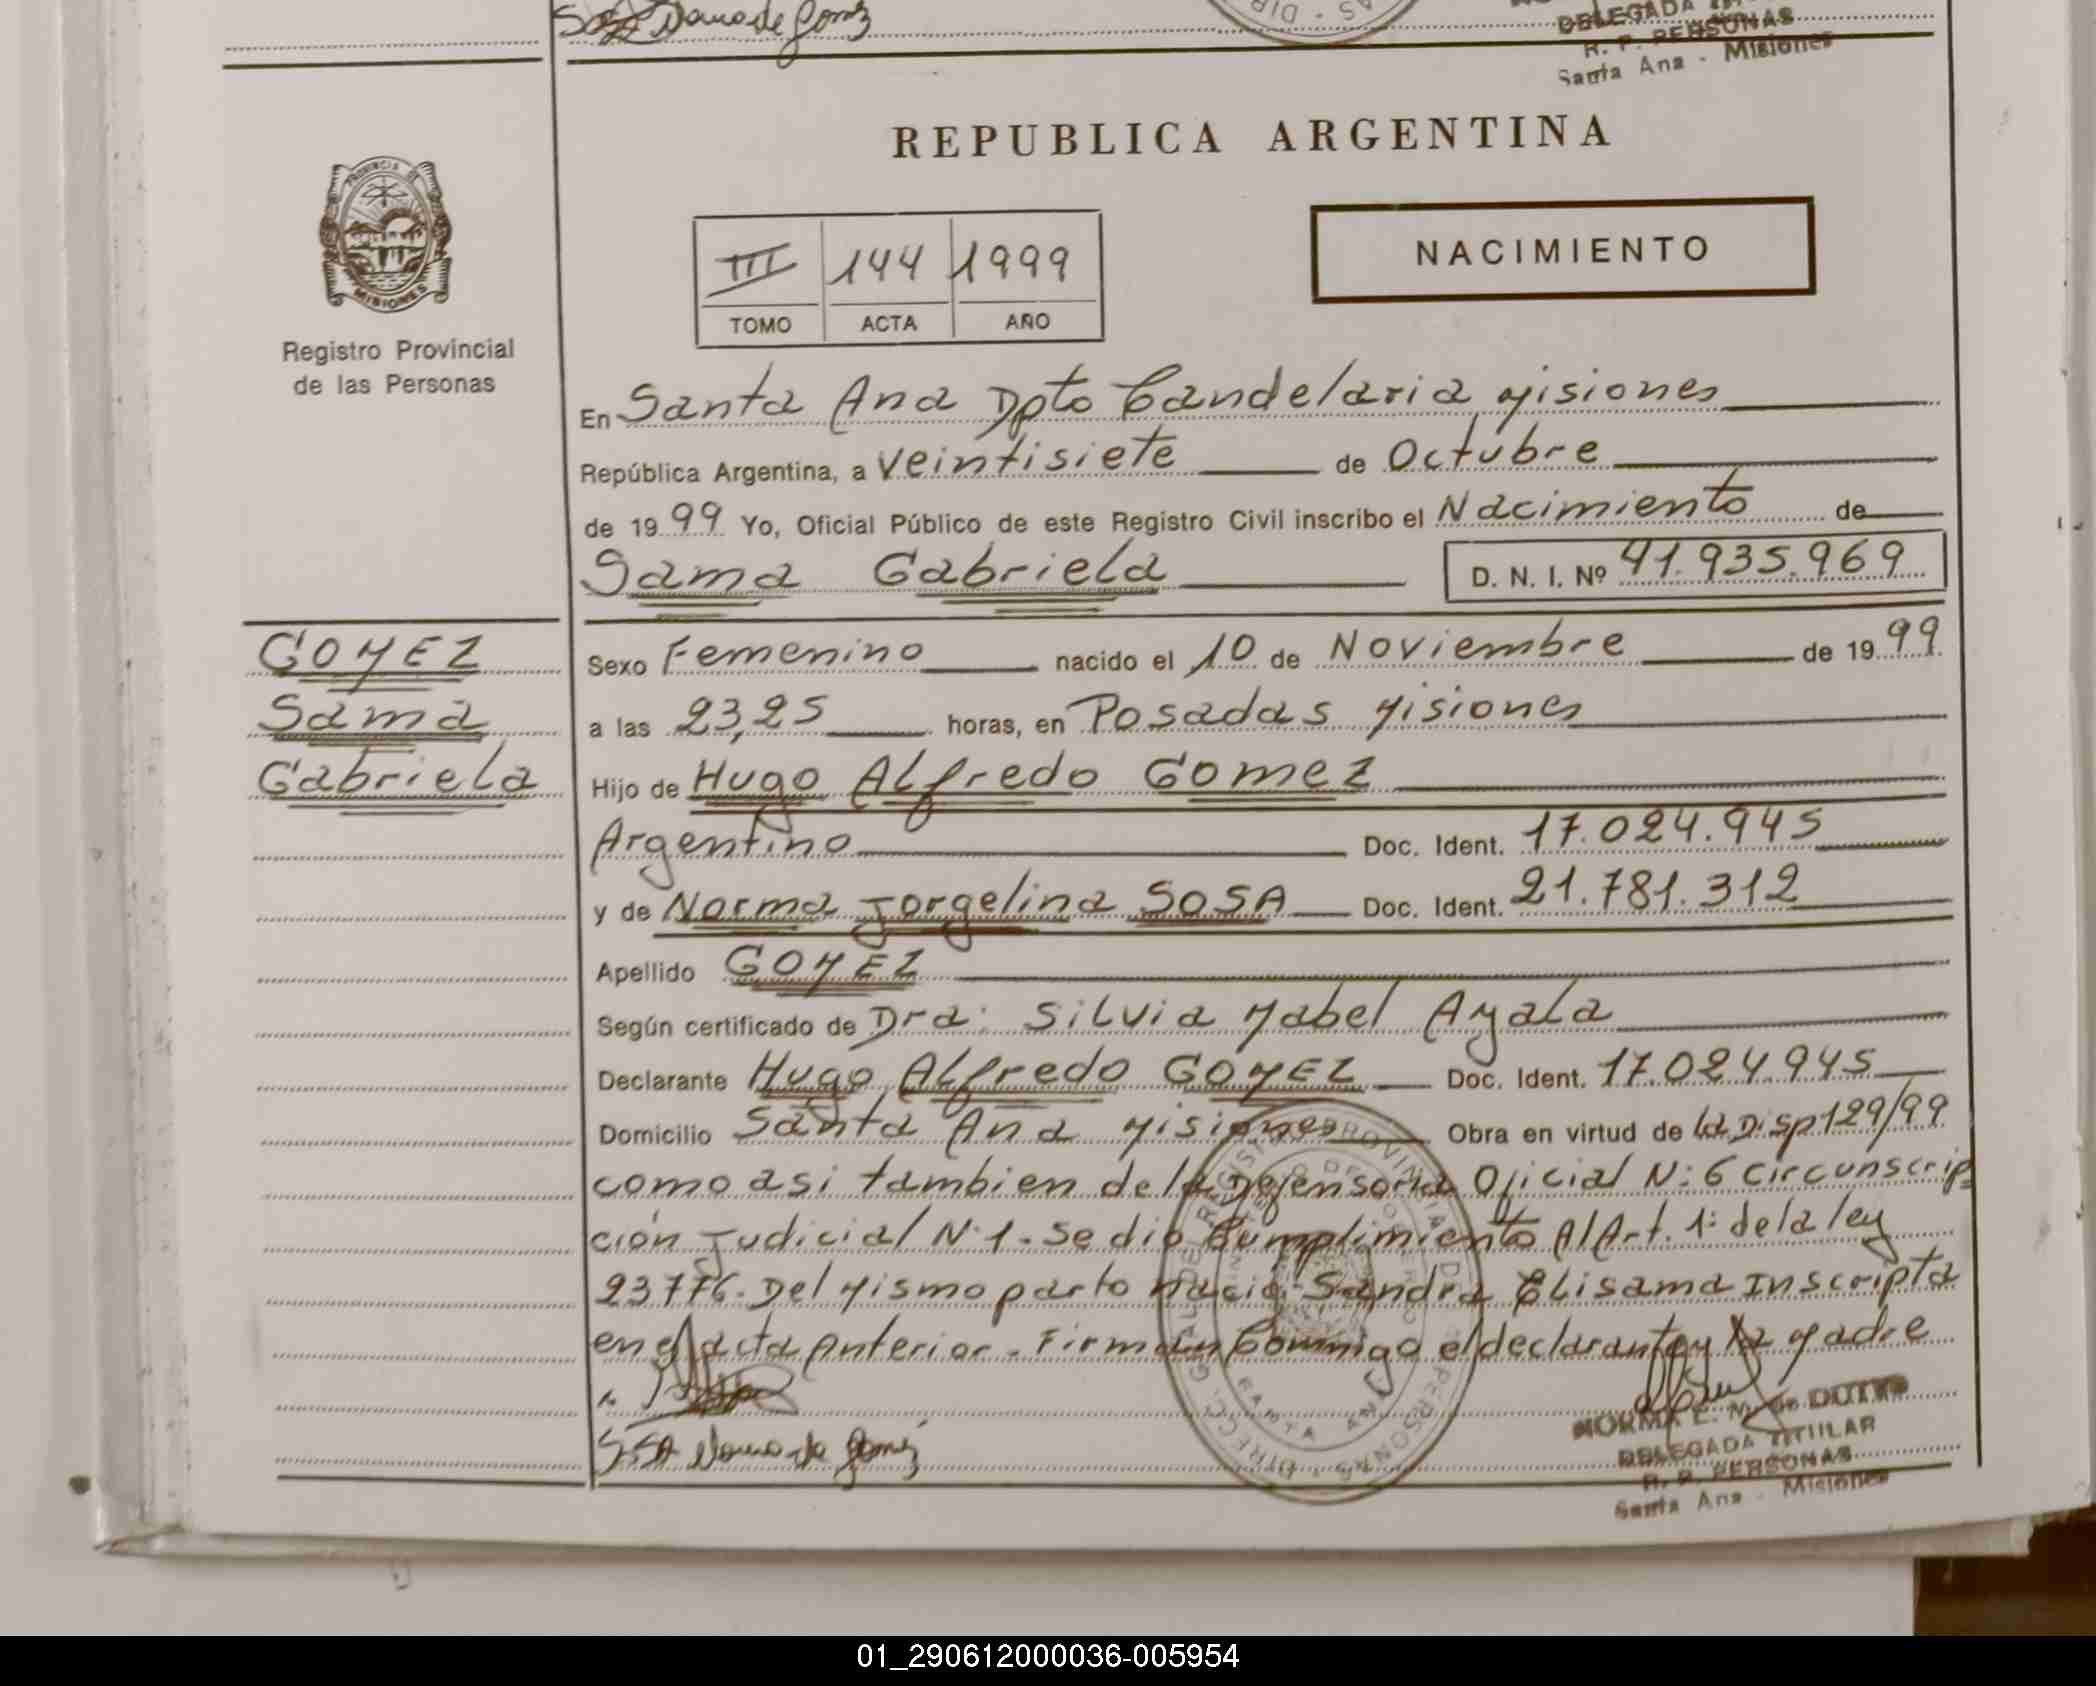 DELEGADA
R. P. PERSONAS
Santa Ana - Misiones
REPUBLICA ARGENTINA
PROVINCIA DE
MISIONES
Registro Provincial
de las Personas
III 144 1999
TOMO ACTA AÑO
NACIMIENTO
En Santa Ana Dpto Candelaria Misiones
República Argentina, a veintisiete de Octubre
de 1999 Yo, Oficial Público de este Registro Civil inscribo el Nacimiento de
Sama Gabriela D. N. I. Nº 41.935.969
GOMEZ
Sama
Gabriela
Sexo Femenino nacido el 10 de Noviembre de 1999
a las 23,25 horas, en Posadas Misiones
Hijo de Hugo Alfredo Gomez
Argentino Doc. Ident. 17.024.945
y de Norma Jorgelina SOSA Doc. Ident. 21.781.312
Apellido GOMEZ
Según certificado de Dra: Silvia Mabel Ayala
Declarante Hugo Alfredo GOMEZ Doc. Ident. 17.024.945
Domicilio Santa Ana Misiones Obra en virtud de la Disp 129/99
como asi tambien de la Defensoria Oficial N: 6 Circunscrip=
ción Judicial N: 1 - Se dio Cumplimiento Al Art. 1: de la ley
23776. Del Mismo parto nació Sandra Elisama Inscripta
en el Acta Anterior. Firman Conmigo el declarante y la Madre
SOSA Norma de Gomez
NORMA E. N. de
DELEGADA TITULAR
R. P. PERSONAS
Santa Ana - Misiones
01_290612000036-005954